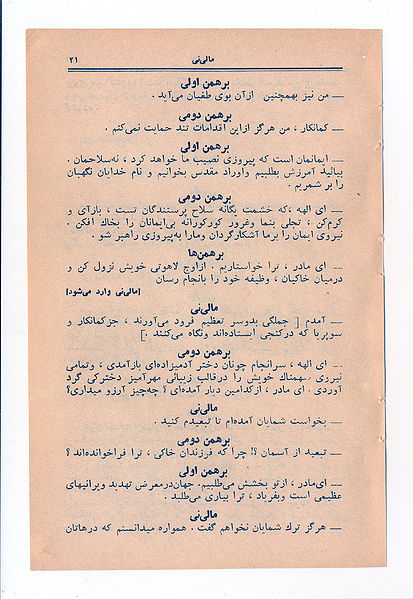 مالی‌نی ۲۱
برهمن اولی
— من نیز بهمچنین ازآن بوی طغیان می‌آید .
برهمن دومی
— کمانکار ، من هرگز ازاین اقدامات تند حمایت نمی‌کنم .
برهمن اولی
— ایمانمان است که پیروزی نصیب ما خواهد کرد ، نه‌سلاحمان .
بیائید آمرزش بطلبیم واوراد مقدس بخوانیم و نام خدایان نگهبان
را بر شمریم .
برهمن دومی
— ای الهه ،که خشمت یگانه سلاح پرستندگان تست ، بازآی و
کرم‌کن ، تجلی بنما وغرور کورکورانهٔ بی‌ایمانان را بخاك افکن .
نیروی ایمان را برما آشکارگردان ومارا به‌پیروزی راهبر شو .
برهمن‌ها
— ای مادر ، ترا خواستاریم . ازاوج لاهوتی خویش نزول کن و
درمیان خاکیان ، وظیفه خود را بانجام رسان
[مالی‌نی وارد می‌شود]
مالی‌نی
— آمدم [ جملگی بدوسر تعظیم فرود می‌آورند ، جزکمانکار و
سوپریا که درکنجی ایستاده‌اند ونگاه می‌کنند .]
برهمن دومی
— ای الهه ، سرانجام چونان دختر آدمیزاده‌ای بازآمدی ، وتمامی
نیروی سهمناك خویش را درقالب زیبائی مهرآمیز دخترکی گرد
آوردی . ای مادر ، ازکدامین دیار آمده‌ای ؟ چه‌چیز آرزو میداری؟
مالی‌نی
— بخواست شمایان آمده‌ام تا تبعیدم کنید .
برهمن دومی
— تبعید از آسمان ؟! چرا که فرزندان خاکی ، ترا فراخوانده‌اند ؟
برهمن اولی
— ای‌مادر ، ازتو بخشش می‌طلبیم. جهان‌درمعرض تهدید ویرانیهای
عظیمی است وبفریاد ، ترا بیاری می‌طلبد .
مالی‌نی
— هرگز ترك شمایان نخواهم گفت . همواره میدانستم که درهاتان